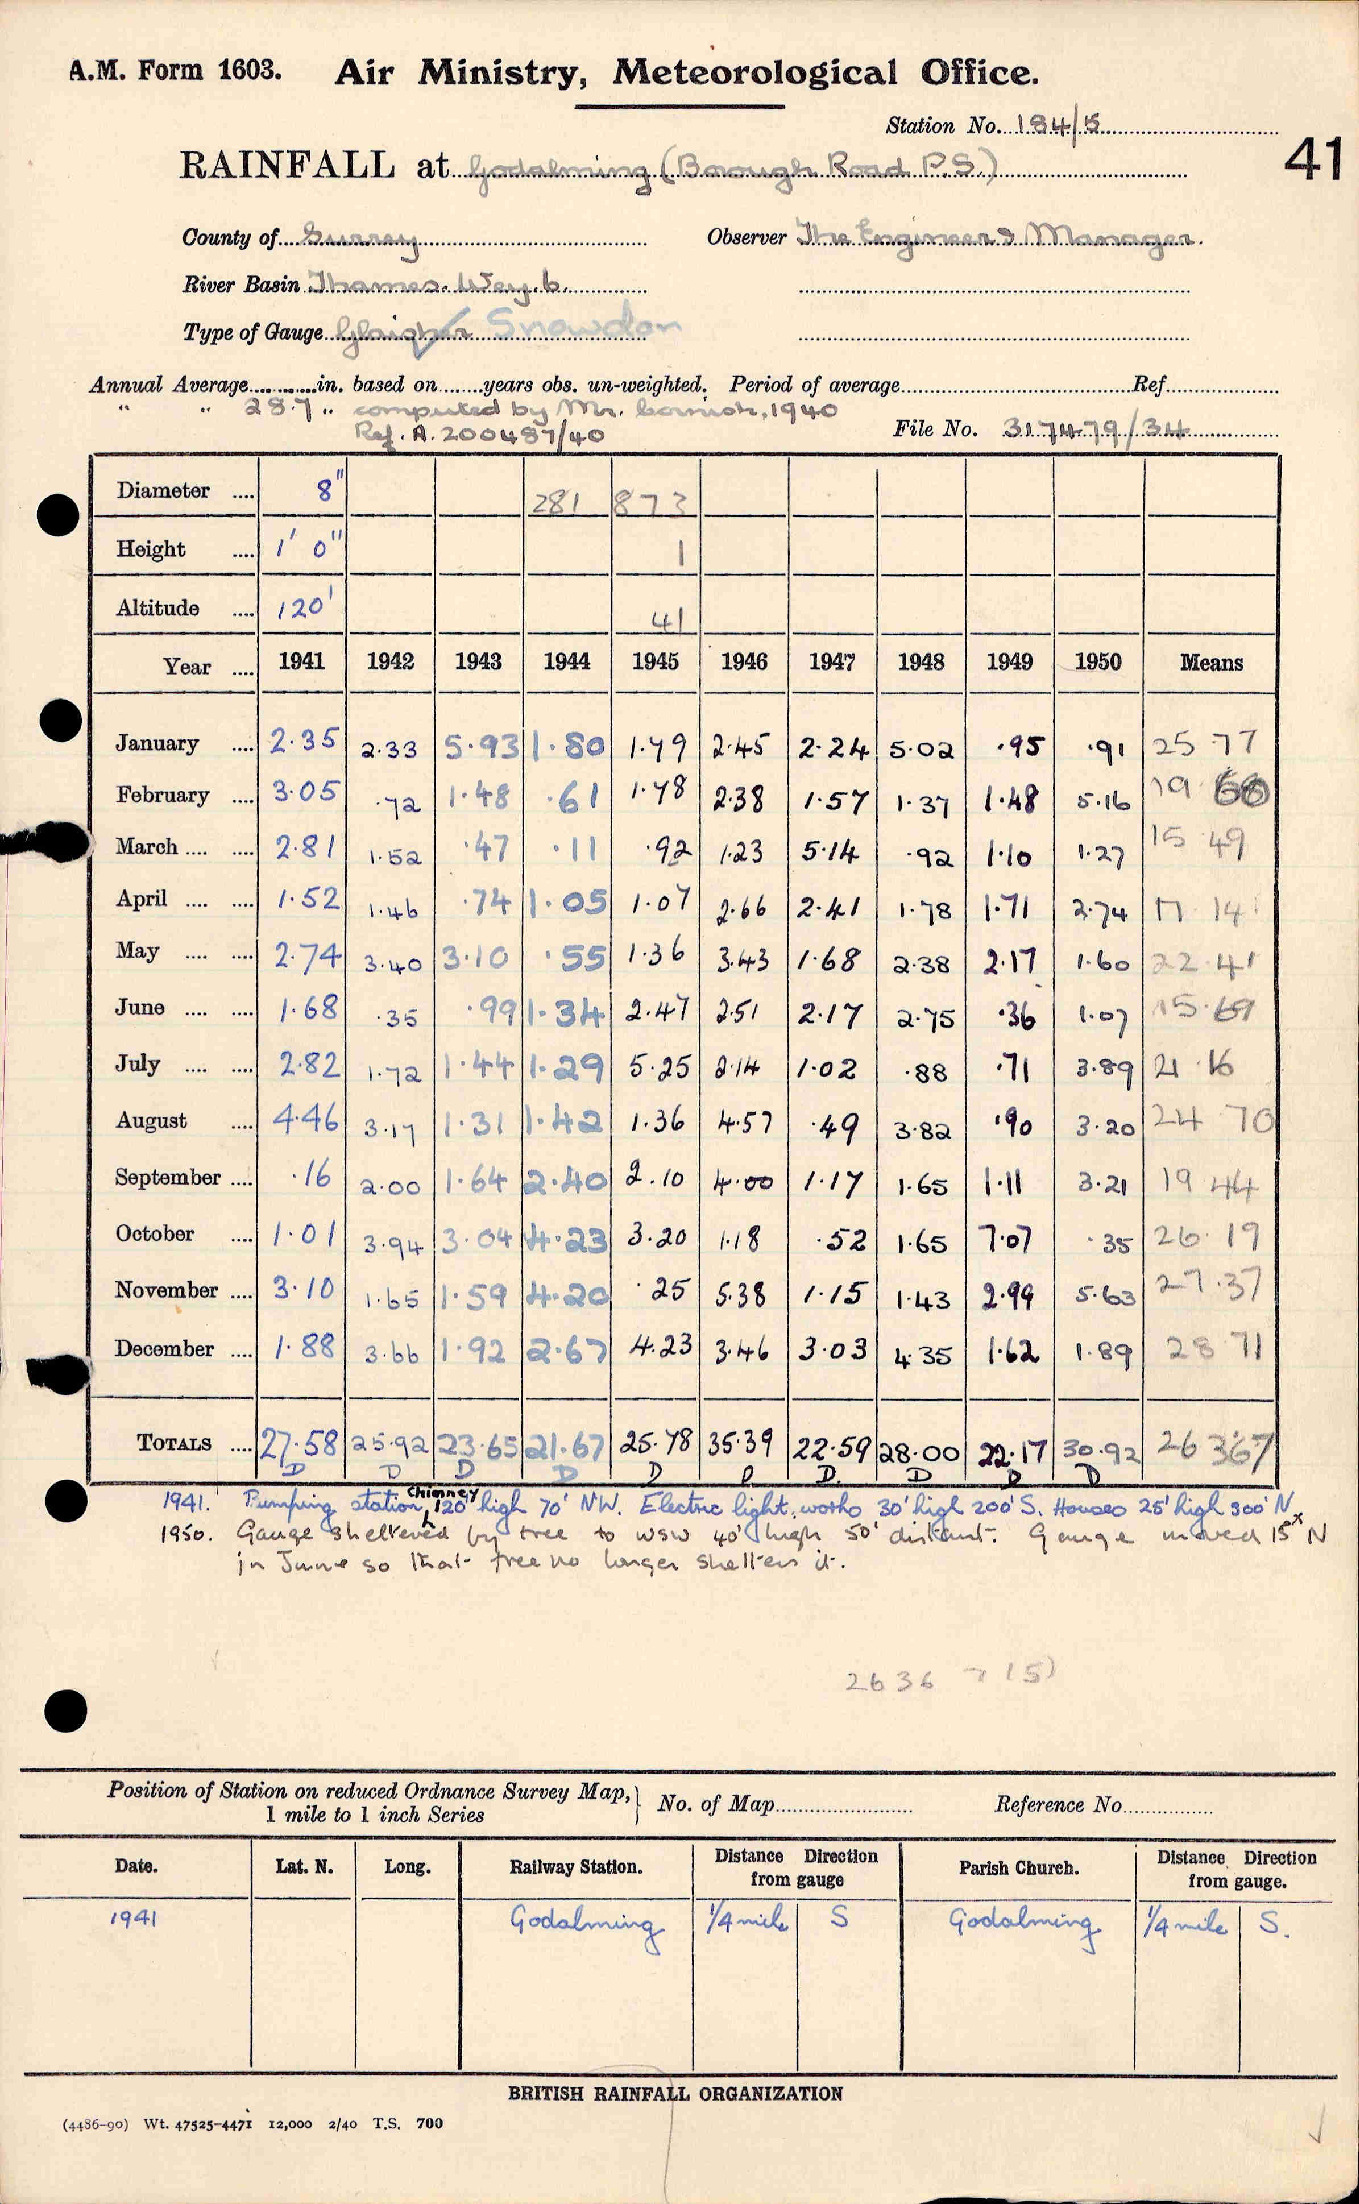 A.M. Form 1603. Air Ministry, Meteorological Office.
Station No. 184/15
41
RAINFALL at Godalming (Borough Road P.S.)
County of Surrey Observer The Engineer & Manager.
River Basin Thames. Wey. 6.
Type of Gauge Glaisher Snowdon
Annual Average in. based on years obs. un-weighted. Period of average Ref.
" " 28.7 " computed by Mr. Cornish, 1940
Ref. A.200487/40 File No. 317479/34
Diameter .... 8" 281 873
Height .... 1' 0" 1
Altitude .... 120' 41
Year .... 1941 1942 1943 1944 1945 1946 1947 1948 1949 1950 Means
January .... 2.35 2.33 5.93 1.80 1.79 2.45 2.24 5.02 .95 .91 25 77
February .... 3.05 .72 1.48 .61 1.78 2.38 1.57 1.37 1.48 5.16 19 60
March .... .... 2.81 1.52 .47 .11 .92 1.23 5.14 .92 1.10 1.27 15 49
April .... .... 1.52 1.46 .74 1.05 1.07 2.66 2.41 1.78 1.71 2.74 17 14
May .... .... 2.74 3.40 3.10 .55 1.36 3.43 1.68 2.38 2.17 1.60 22.41
June .... .... 1.68 .35 .99 1.34 2.47 2.51 2.17 2.75 .36 1.07 15.69
July .... .... 2.82 1.72 1.44 1.29 5.25 2.14 1.02 .88 .71 3.89 21.16
August .... 4.46 3.17 1.31 1.42 1.36 4.57 .49 3.82 .90 3.20 24 70
September .... .16 2.00 1.64 2.40 2.10 4.00 1.17 1.65 1.11 3.21 19 44
October .... 1.01 3.94 3.04 4.23 3.20 1.18 .52 1.65 7.07 .35 26.19
November .... 3.10 1.65 1.59 4.20 .25 5.38 1.15 1.43 2.99 5.63 27.37
December .... 1.88 3.66 1.92 2.67 4.23 3.46 3.03 4.35 1.62 1.89 28 71
TOTALS .... 27.58 25.92 23.65 21.67 25.78 35.39 22.59 28.00 22.17 30.92 26 367
D D D D D D D. D D D
1941. Pumping station chimney 120' high 70' NW. Electric light works 30' high 200' S. Houses 25' high 300' N.
1950. Gauge sheltered by tree to WSW 40' high 50' distant. Gauge moved 15x N
in June so that tree no longer shelters it.
2636 7 (5)
Position of Station on reduced Ordnance Survey Map, 1 mile to 1 inch Series No. of Map Reference No.
Date. Lat. N. Long. Railway Station. Distance Direction from gauge Parish Church. Distance Direction from gauge.
1941 Godalming 1/4 mile S Godalming 1/4 mile S.
BRITISH RAINFALL ORGANIZATION
(4486-90) Wt. 47525-4471 12,000 2/40 T.S. 700